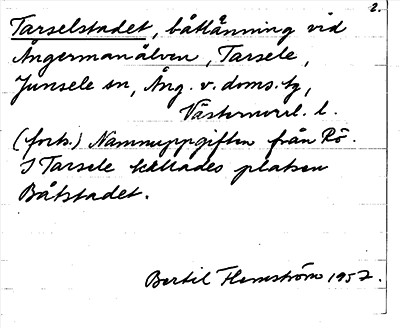 2.
Tarselstadet, båtlänning vid
Ångermanälven, Tarsele,
Junsele sn, Ång. v. doms. tg,
Västernorrl. l.
(forts.) Namnuppgiften från Rö.
I Tarsele kallades platsen
Båtstadet.
Bertil Flemström 1957.